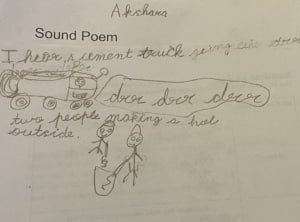 Akshara
Sound Poem
I hear a cement truck going
drrr drrr drrr
two people making a
outside.